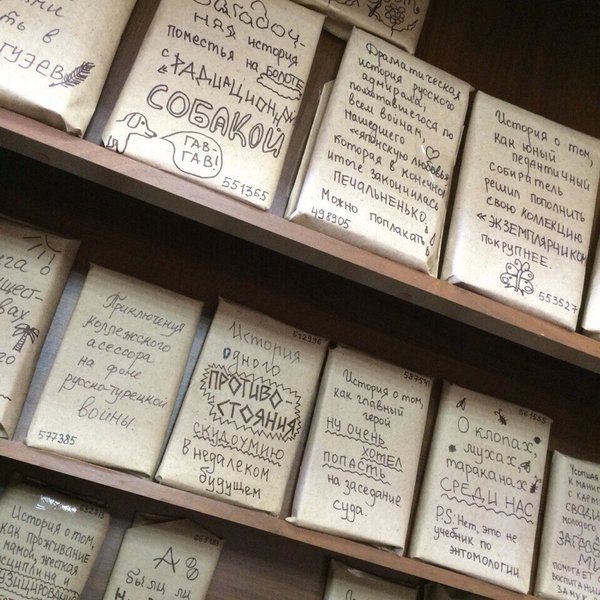 ть в
Загадоч-
ная история
поместья на болоте
с «РАДИАЦИОННОЙ
СОБАКОЙ
ГАВ-
ГАВ!
551365
Драматическая
история русского
адмирала,
по
всем войнам,
нашедшего
«японскую любовь»
которая в конечном
итоге закончилась
ПЕЧАЛЬНЕНЬКО.
Можно поплакать
498905
История о том,
как юный
педантичный
собиратель
решил пополнить
свою коллекцию
«ЭКЗЕМПЛЯРЧИКОМ
ПОКРУПНЕЕ.
553527
Приключения
коллежского
асессора
на фоне
русско-турецкой
войны.
577385
История
одного
ПРОТИВО-
СТОЯНИЯ
СКУДОУМИЮ
в недалеком
будущем
История о том,
как главный
герой
НУ ОЧЕНЬ
ХОТЕЛ
ПОПАСТЬ
на заседание
суда.
О клопах,
мухах,
тараканах
СРЕДИ НАС
P.S: Нет, это не
учебник по
энтомологии
561555
История о том,
как проживание
с мамой, жёсткая
А
были ли
ЗАГРОБ
МИ